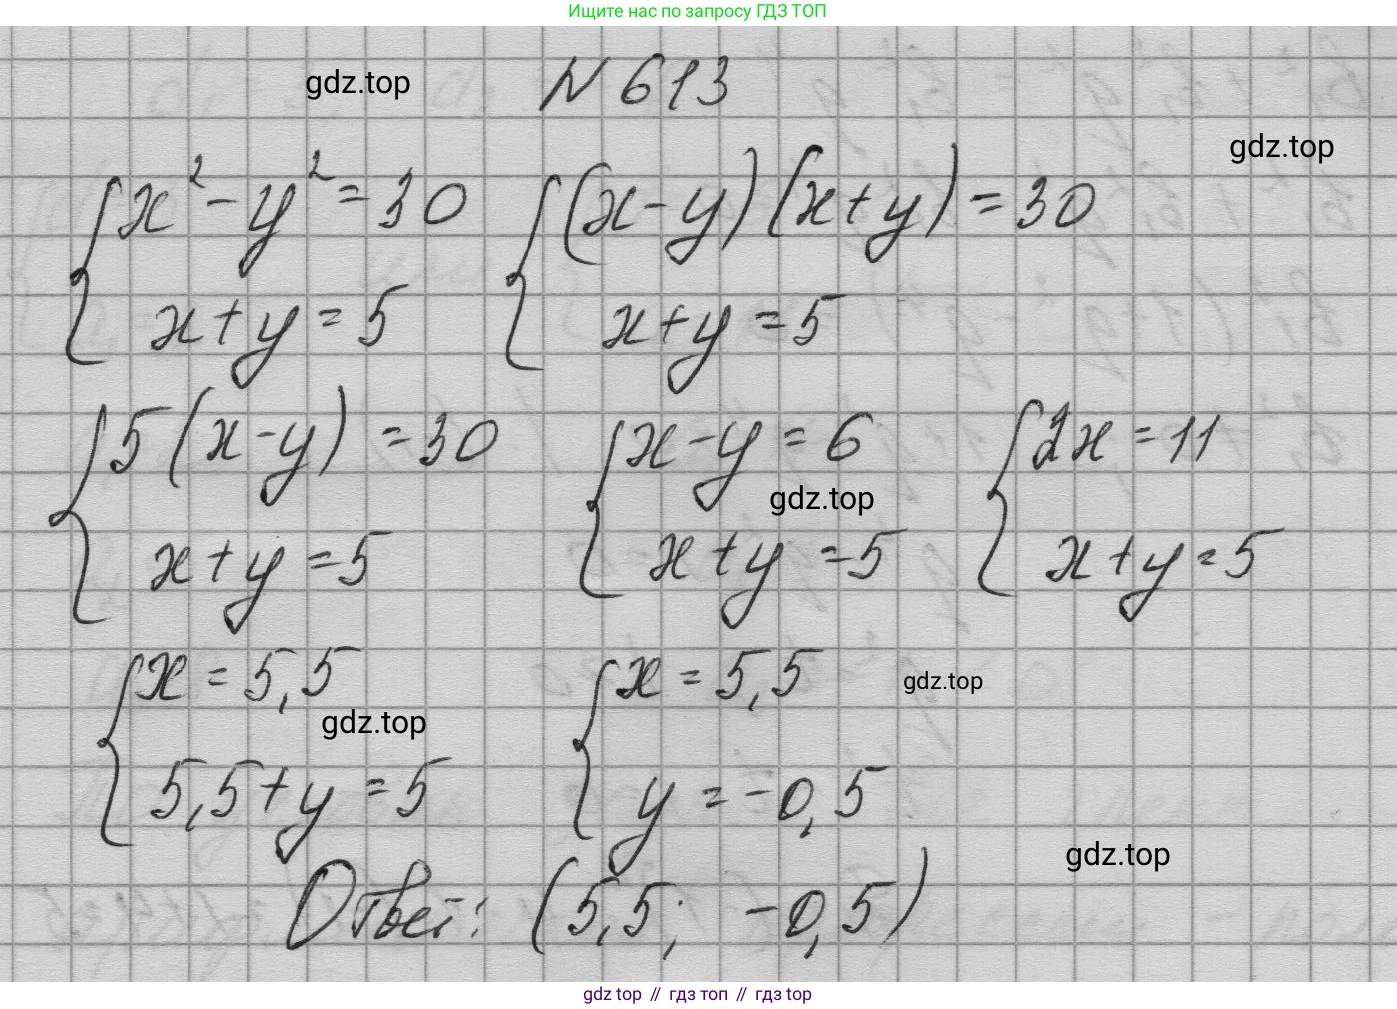 Ищите нас по запросу ГДЗ ТОП
gdz.top N 613
gdz.top
x² - y² = 30 (x - y)(x + y) = 30
x + y = 5 x + y = 5
5(x - y) = 30 x - y = 6 2x = 11
gdz.top
x + y = 5 x + y = 5 x + y = 5
x = 5,5 x = 5,5 gdz.top
gdz.top
5,5 + y = 5 y = -0,5
gdz.top
Ответ: (5,5; -0,5)
gdz top // гдз топ // гдз top